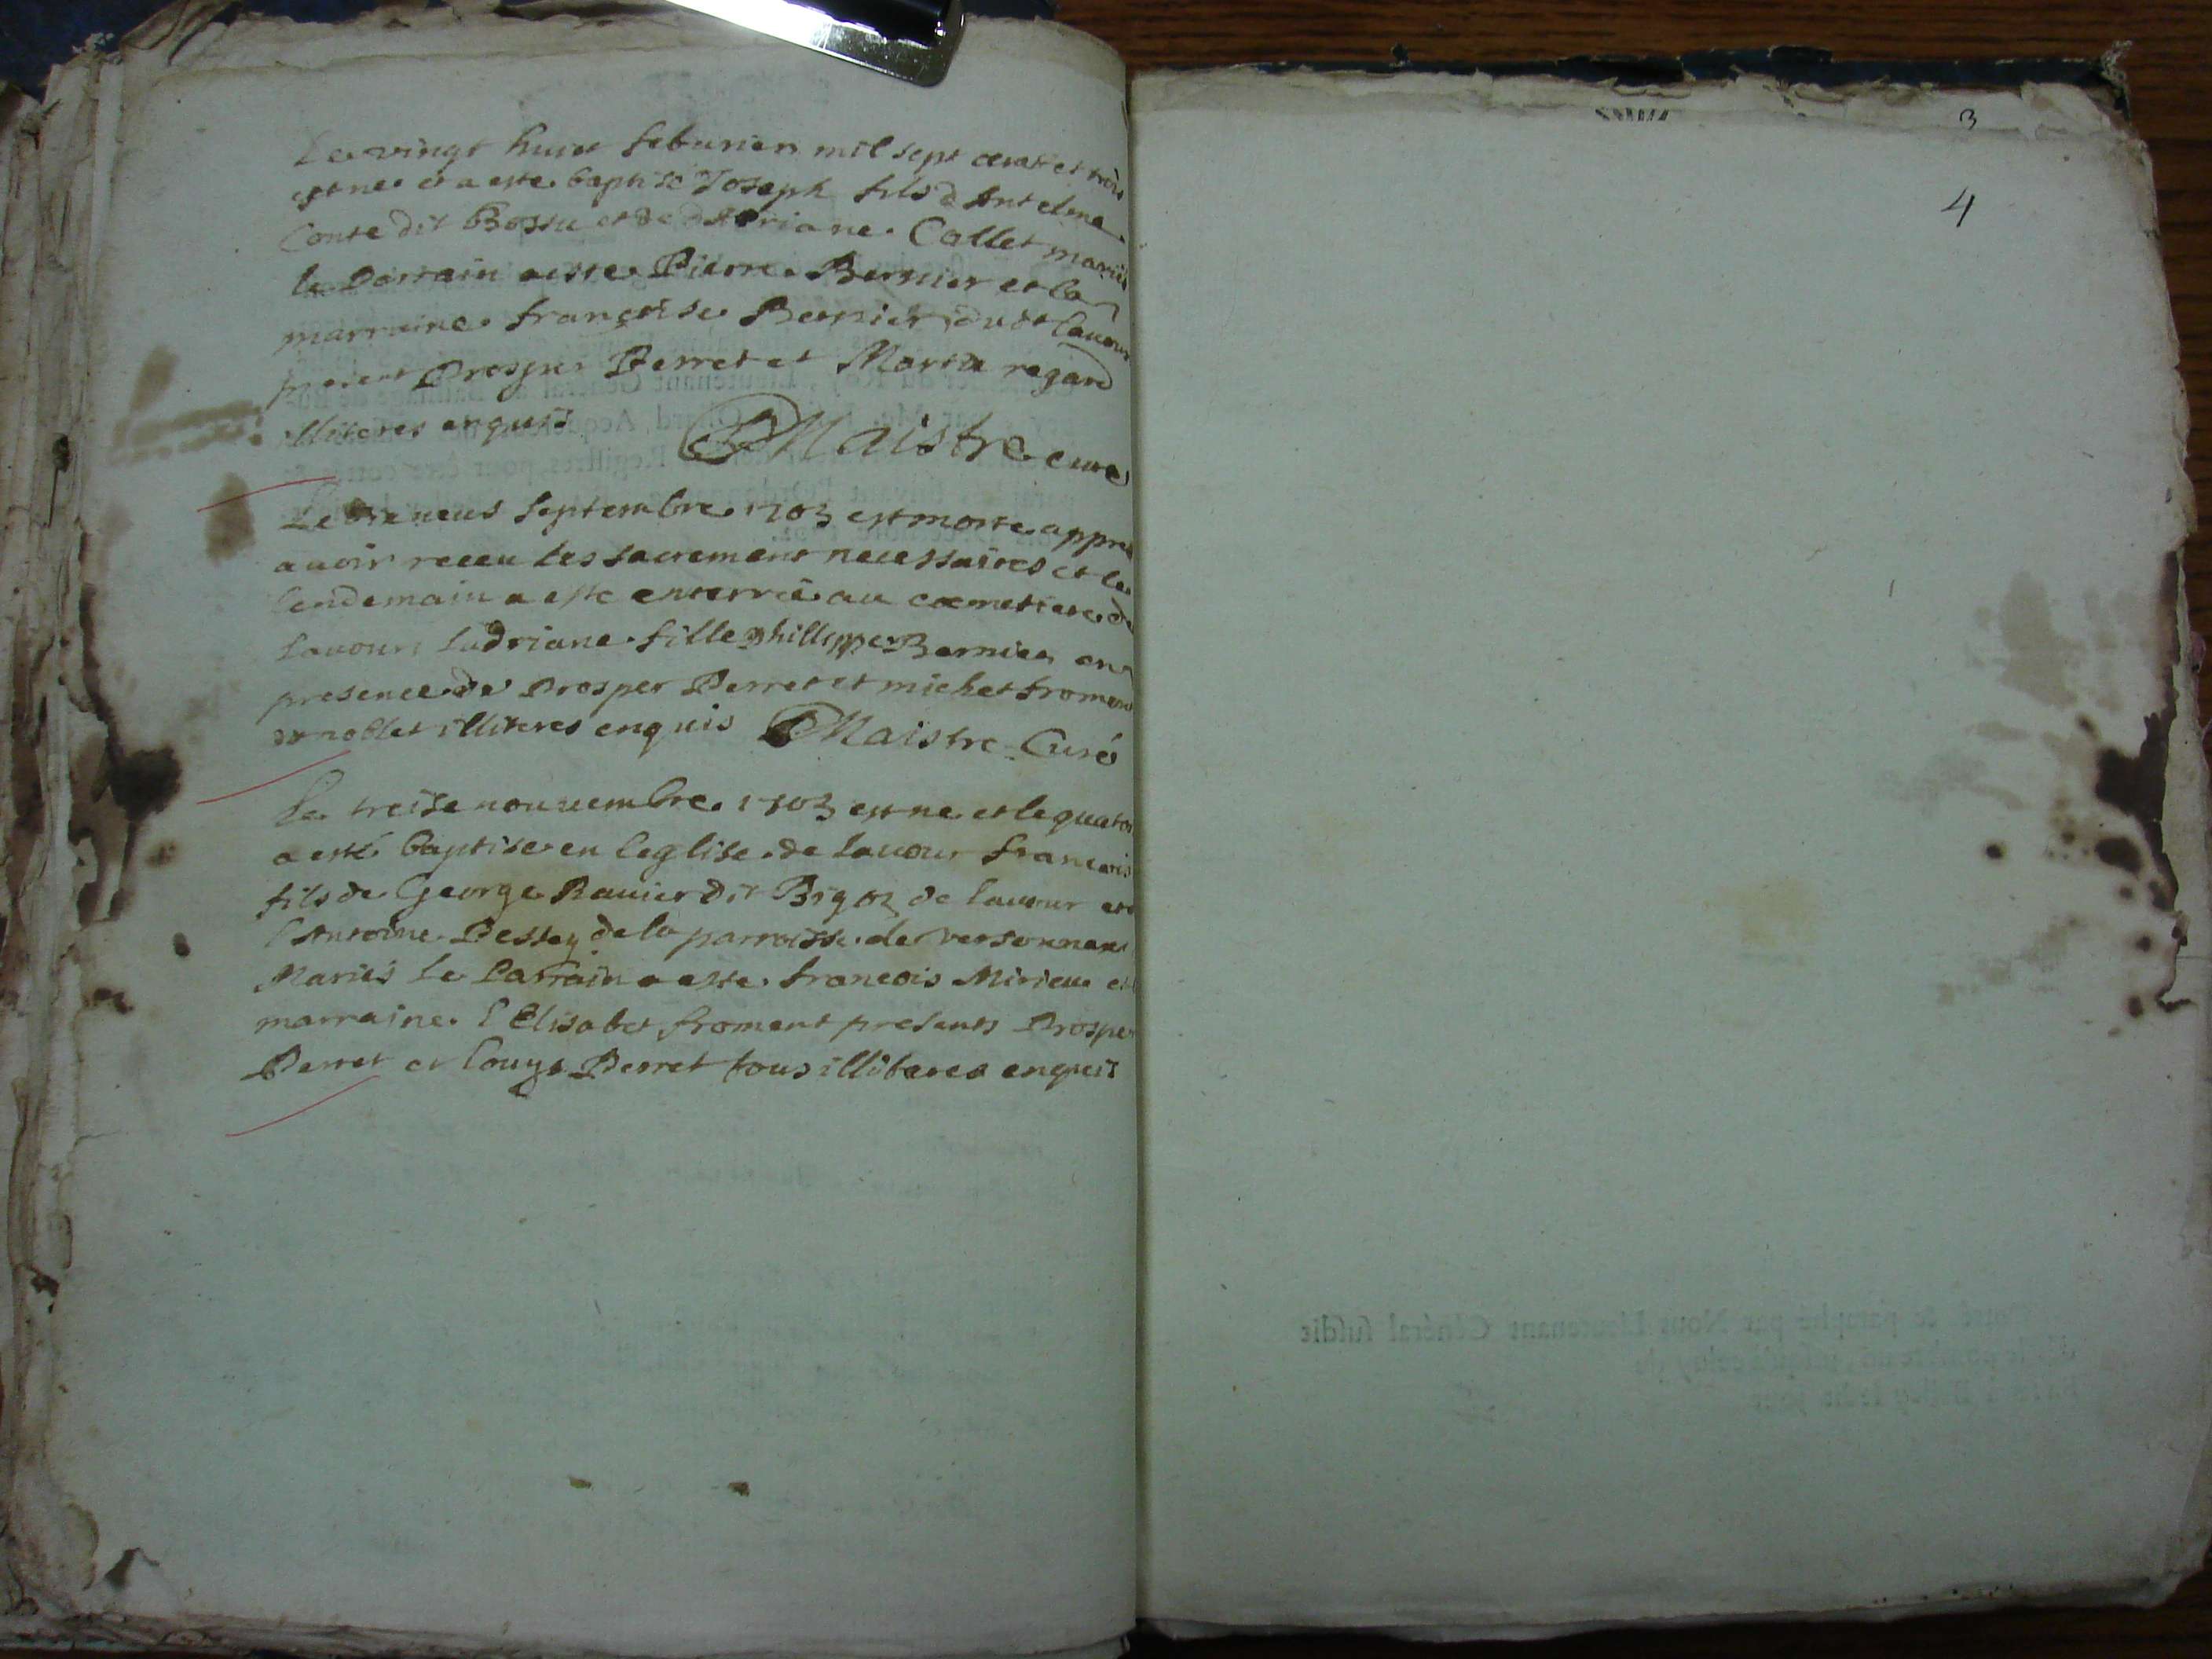 Le vingt huict feburier mil sept cent et trois
est ne et a este baptise Joseph fils d Antelme
Conte dit Bossu et de dAdriane Collet mariés
le Parrain a este Pierre Bernier et la
marraine françoise Bernier dudt lauour
presents Prosper Perret et Martin regard
illiteres enquis
PMaistre cure
Le septembre 1703 est morte appres
auoir receu les sacrement necessaires et le
lendemain a este enterrée au cœmetiere de
lauour ladriane fille phillippe Bernier en
presence de Prosper Perret et michel froment
noblet illiteres enquis PMaistre Curé
Le treise nouuembre 1703 est ne et le quator
a esté baptise en leglise de lauour francois
fils de George Rauier dit Bigoz de lauour et
lAntoine Pessey de la parroisse de versonnex
Mariés Le Parrain a este francois Mirieu et
marraine lElisabet froment presents Prosper
Perret et louys Perret tous illiteres enquis
3
4